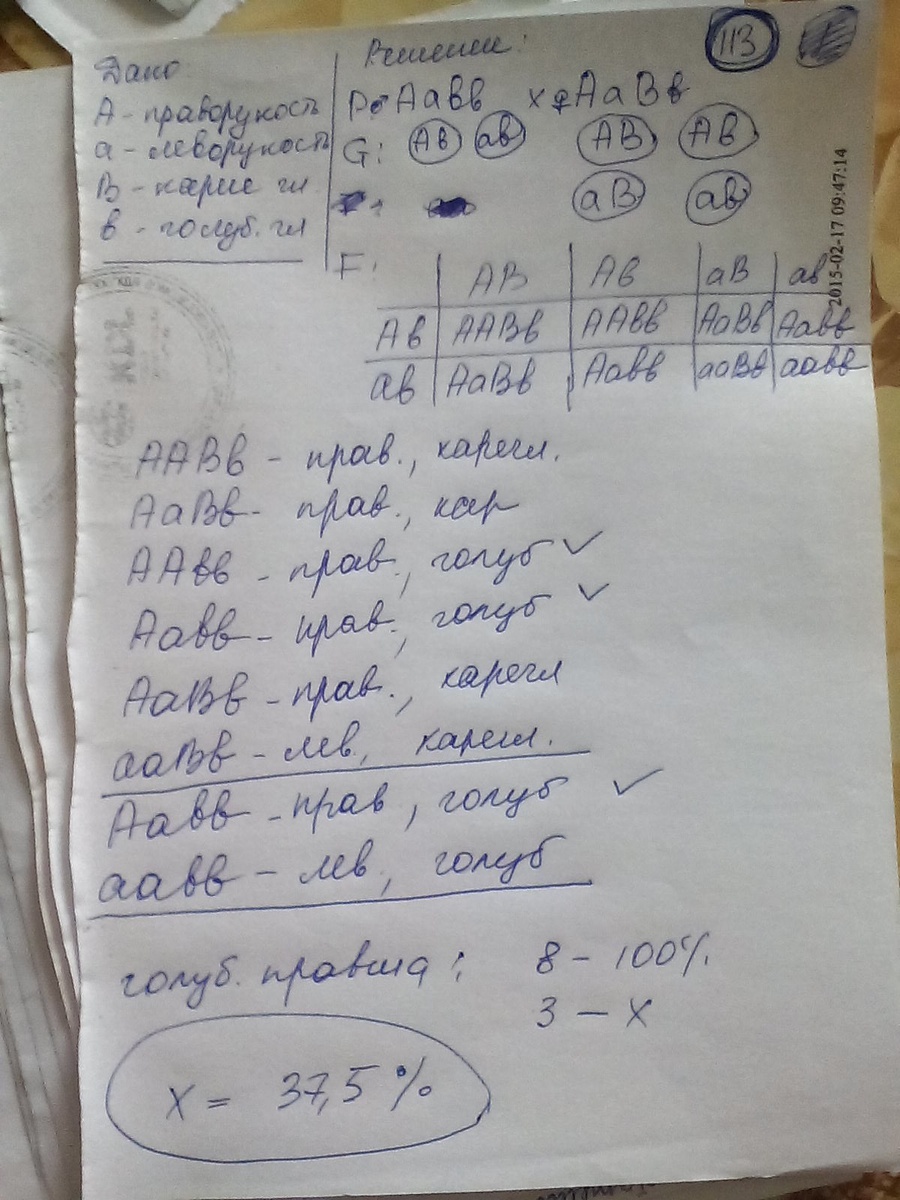 Дано
А - праворукость
а - леворукость
В - карие гл.
в - голуб. гл
Решение:
113
Р ♂ Аавв х ♀ АаВв
G: Ав ав АВ Ав
аВ ав
F:
АВ Ав аВ ав
Ав ААВв ААвв АаВв Аавв
ав АаВв Аавв ааВв аавв
2015-02-17 09:47:14
ААВв - прав., карегл.
АаВв - прав., кар
ААвв - прав., голуб ✓
Аавв - прав., голуб ✓
АаВв - прав., карегл
ааВв - лев, карегл.
Аавв - прав, голуб ✓
аавв - лев, голуб
голуб. правша: 8 - 100%
3 - х
х = 37,5 %